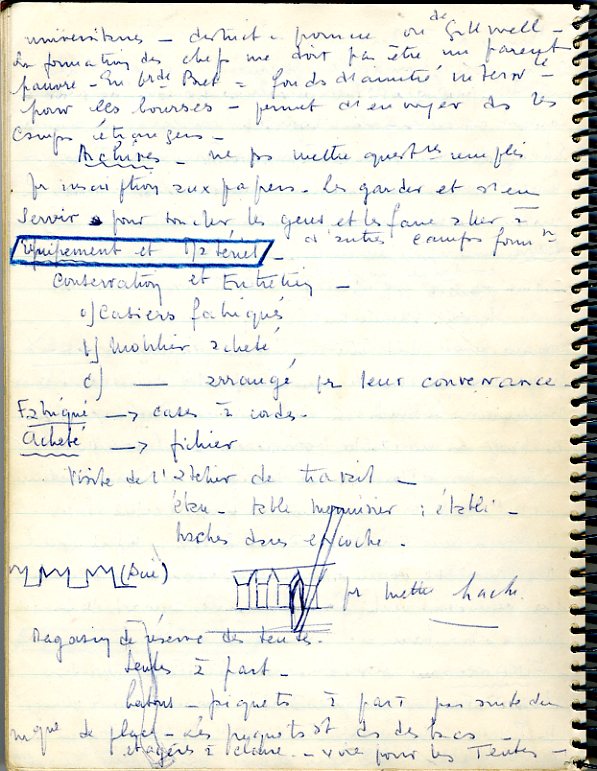 universitaires - district - province ou de Gillwell -
La formation des chefs ne doit pas être un parent
pauvre - En Gr de Bret = fonds d'amitié internle
pour les bourses - permet d'envoyer ds les
camps étrangers -
Archives - ne pas mettre questres remplis
pr inscription aux papiers - Les garder et s'en
servir pour toucher les gens et les faire aller à
d'autres camps formn
Equipement et Matériel -
Conservation et Entretien -
a) Casiers fabriqués
b) Mobilier acheté
c) — arrangé pr leur convenance -
Fabriqué -> cases à cordes -
Acheté -> fichier
Visite de l'atelier de travail -
étau - table menuisier : établi -
haches dans encoche -
(scie)
pr mettre hache
Magasin de réserve des tentes -
tentes à part -
batons - piquets à part par suite du
mque de place - Les piquets st ds des bacs -
étagères à claire - voie pour les Tentes -